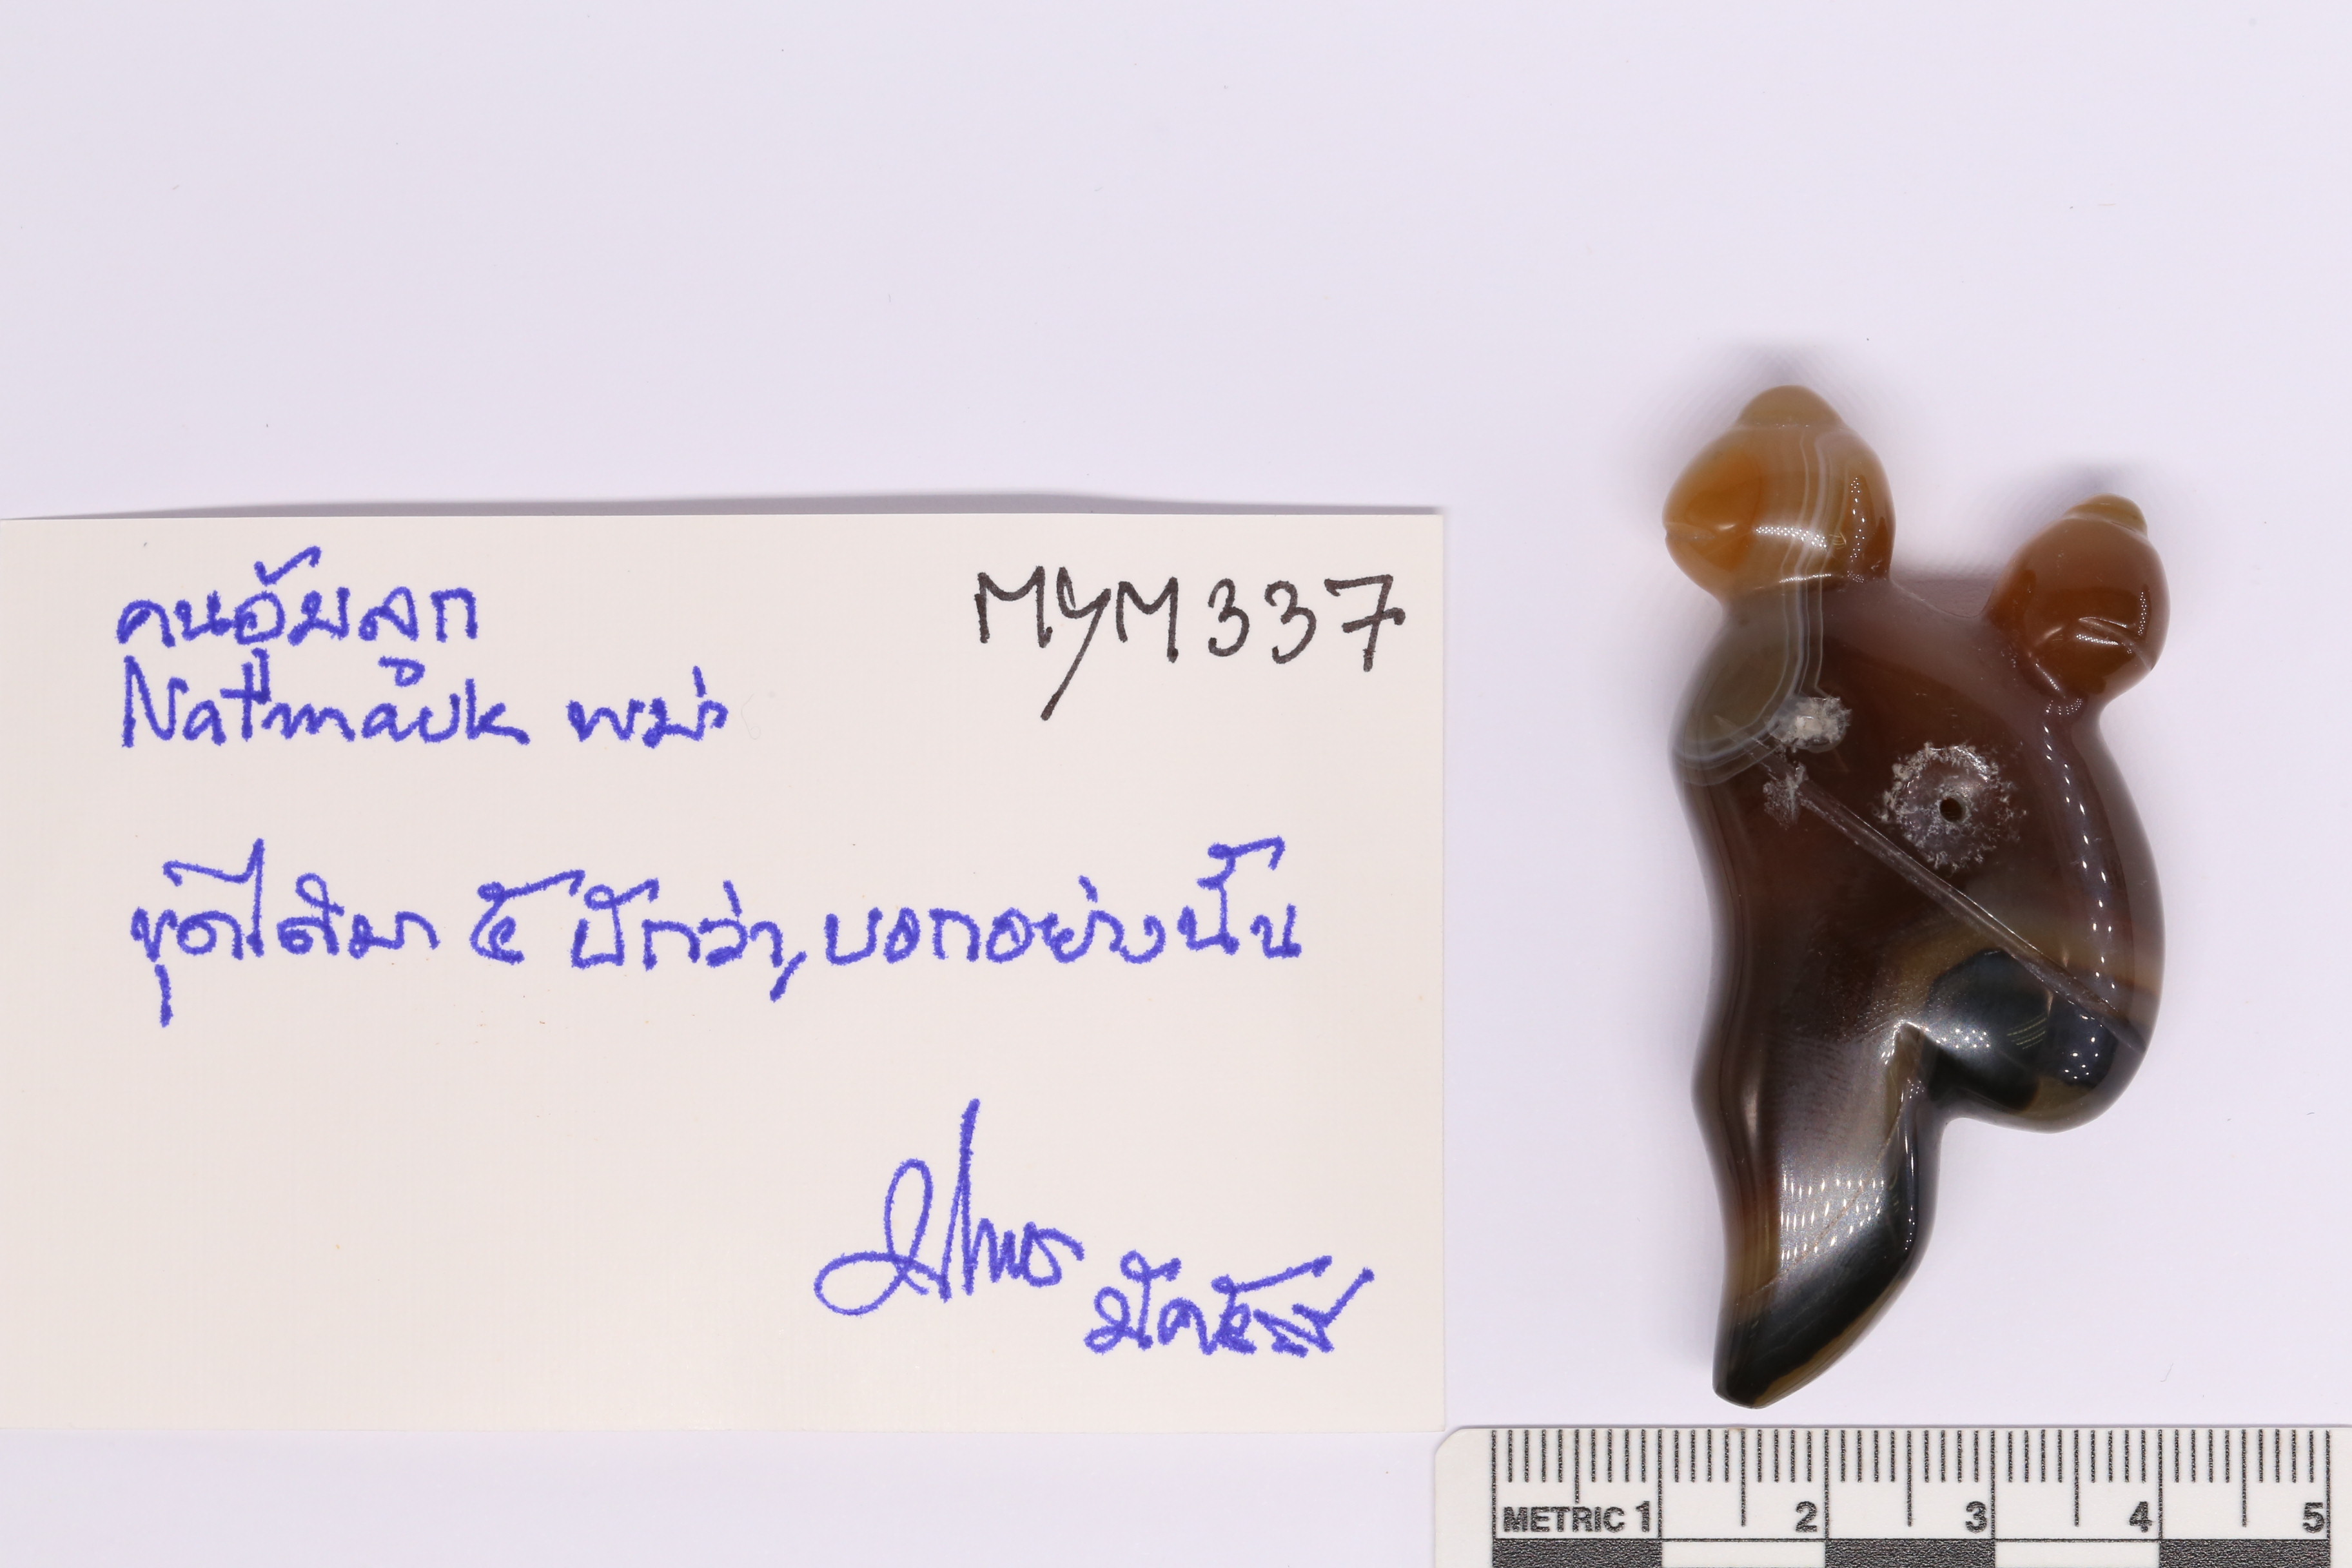 คนอุ้มลูก
MYM337
Natmauk พม่า
ขุดได้มา ๕ ปีกว่า, บอกอย่างนั้น
METRIC 1 2 3 4 5